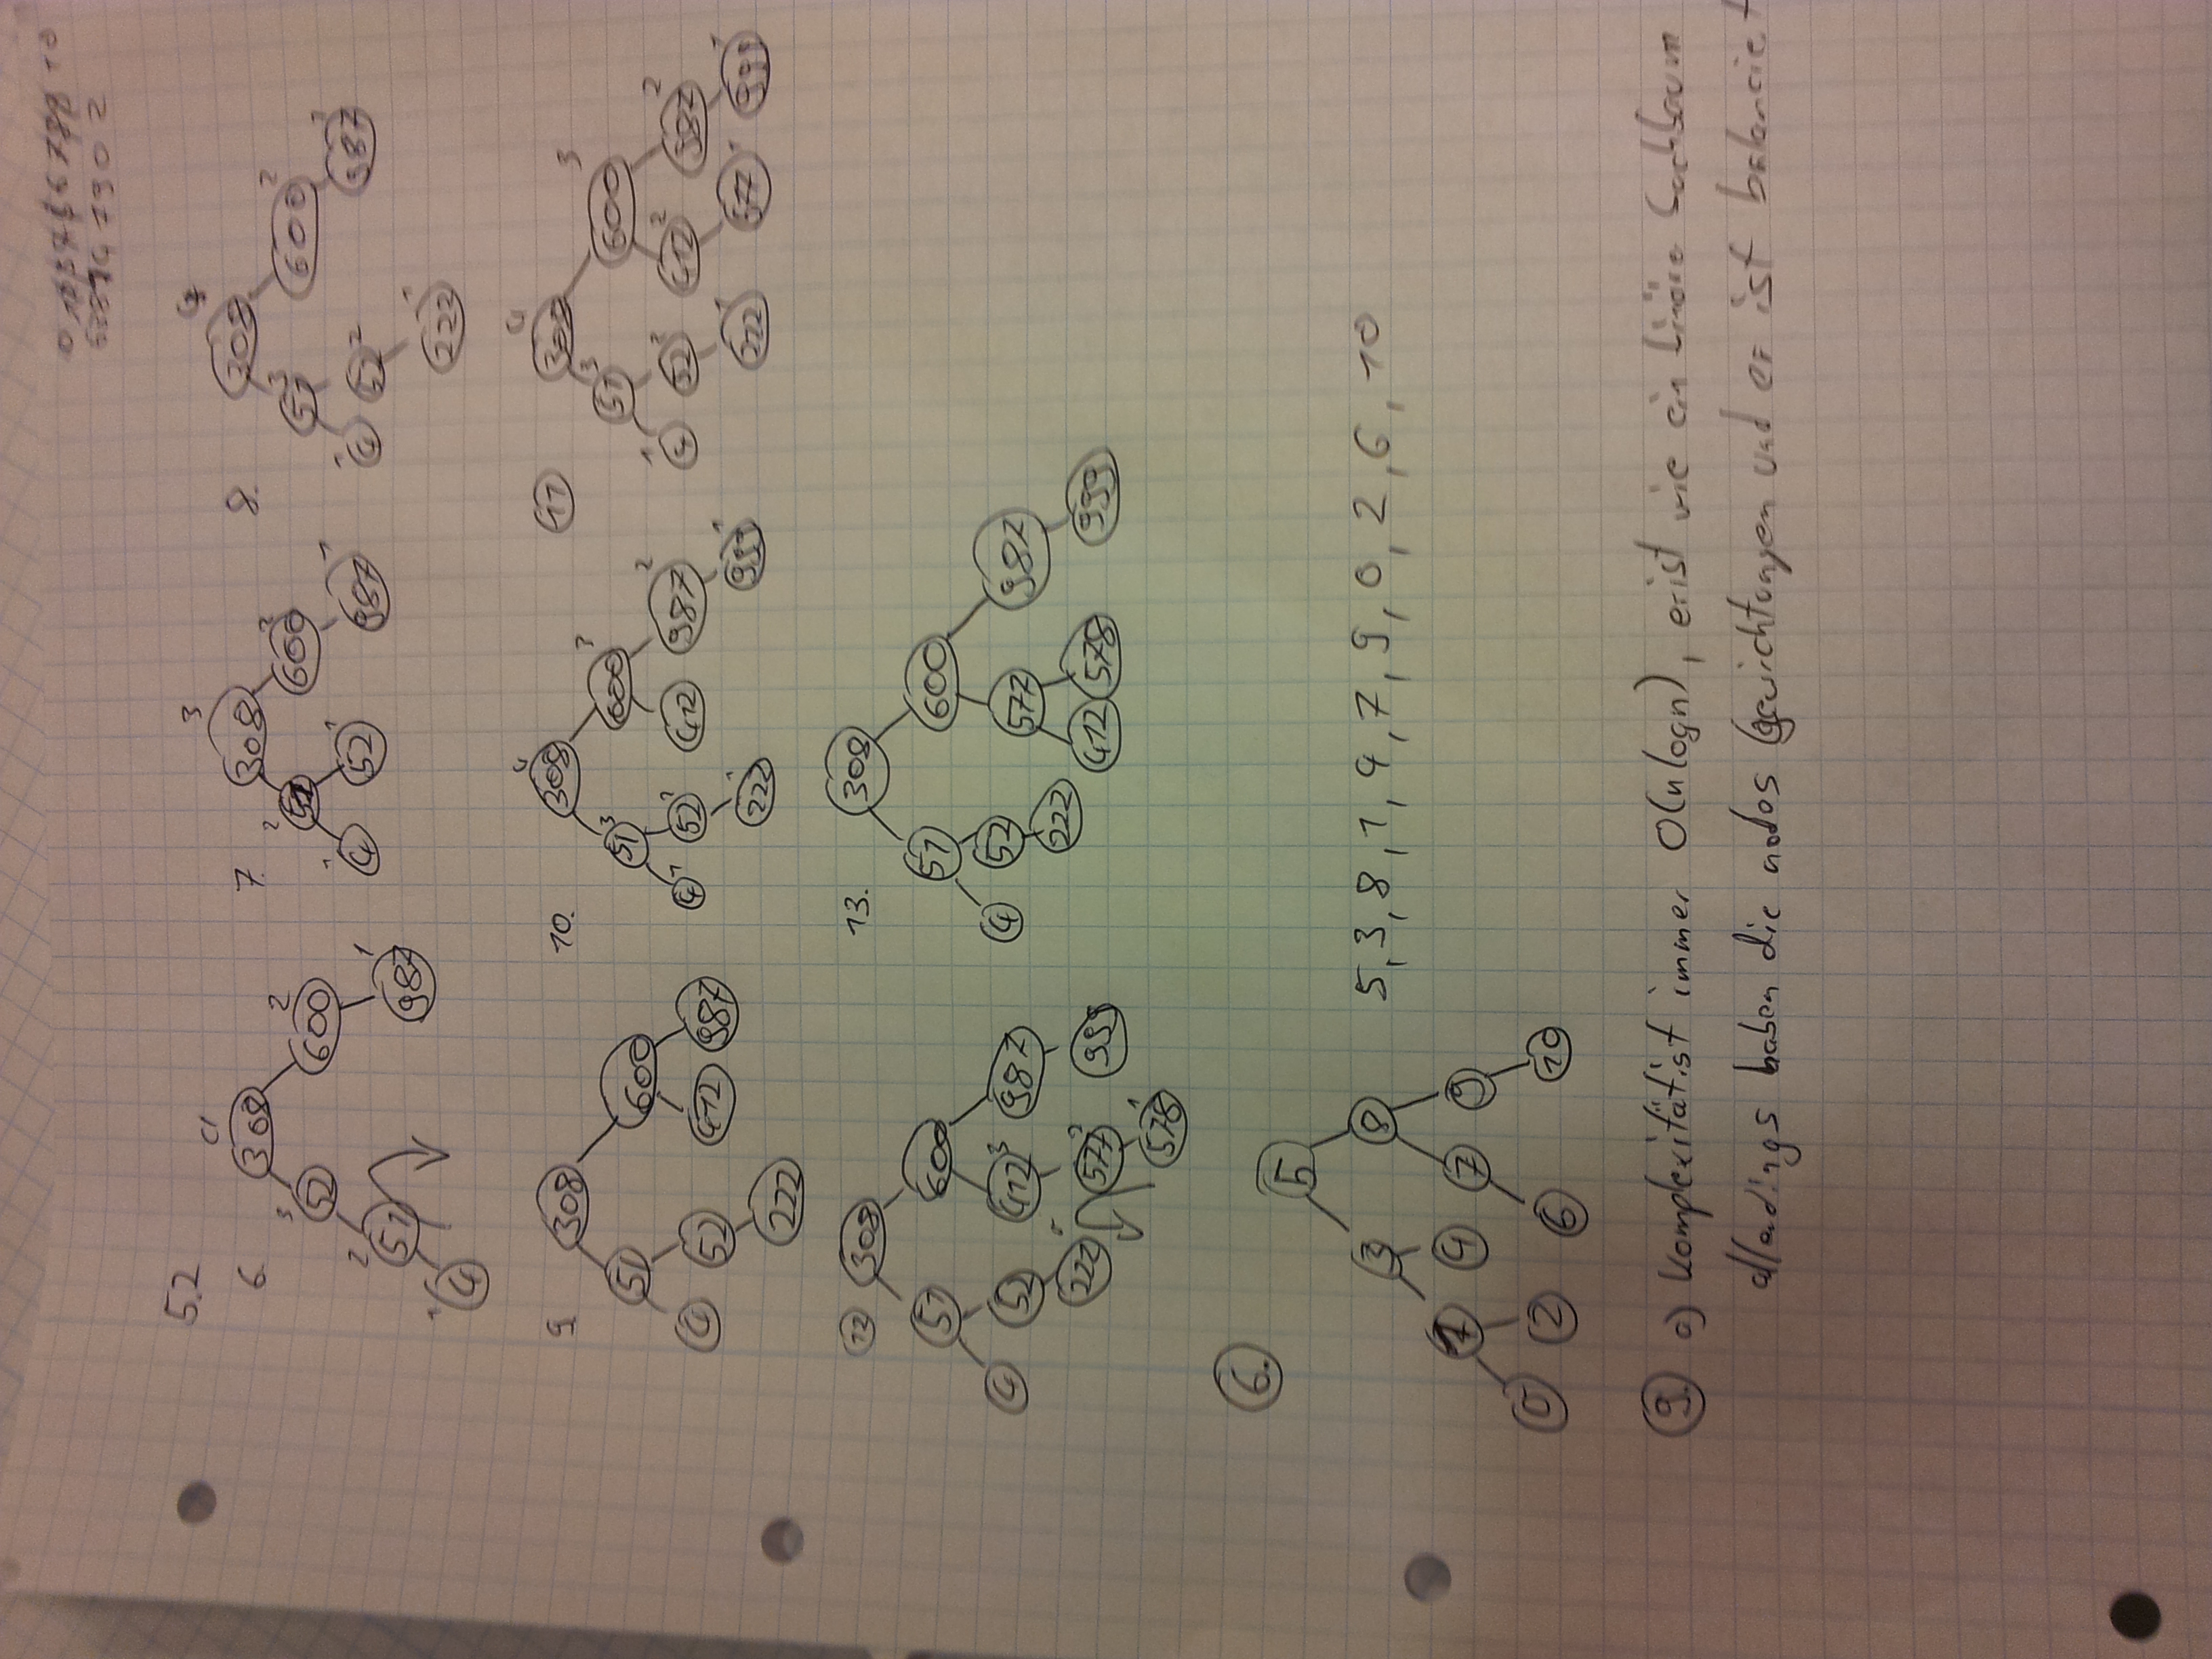 5.2
6.
4
308
3
52
2
600
2
51
1
987
1
4
7.
3
308
2
51
2
600
1
4
52
1
987
1
8.
4
308
51
3
600
2
1
4
52
2
987
1
222
1
9
308
51
600
4
52
412
987
222
10.
4
308
51
3
600
3
4
1
52
2
412
987
2
222
1
999
1
11
4
308
51
3
600
3
1
4
52
2
412
2
987
2
222
1
577
1
999
1
12
308
51
600
4
52
412
3
987
222
577
2
999
578
1
13.
308
51
600
4
52
577
987
222
412
578
999
6.
5
3
8
5, 3, 8, 1, 4, 7, 9, 0, 2, 6, 10
1
4
7
9
0
2
6
10
9. a) Komplexitätist immer O(n logn), erist wie ein binäre Suchbaum
allerdings haben die nodes Gewichtungen und er ist balanciet